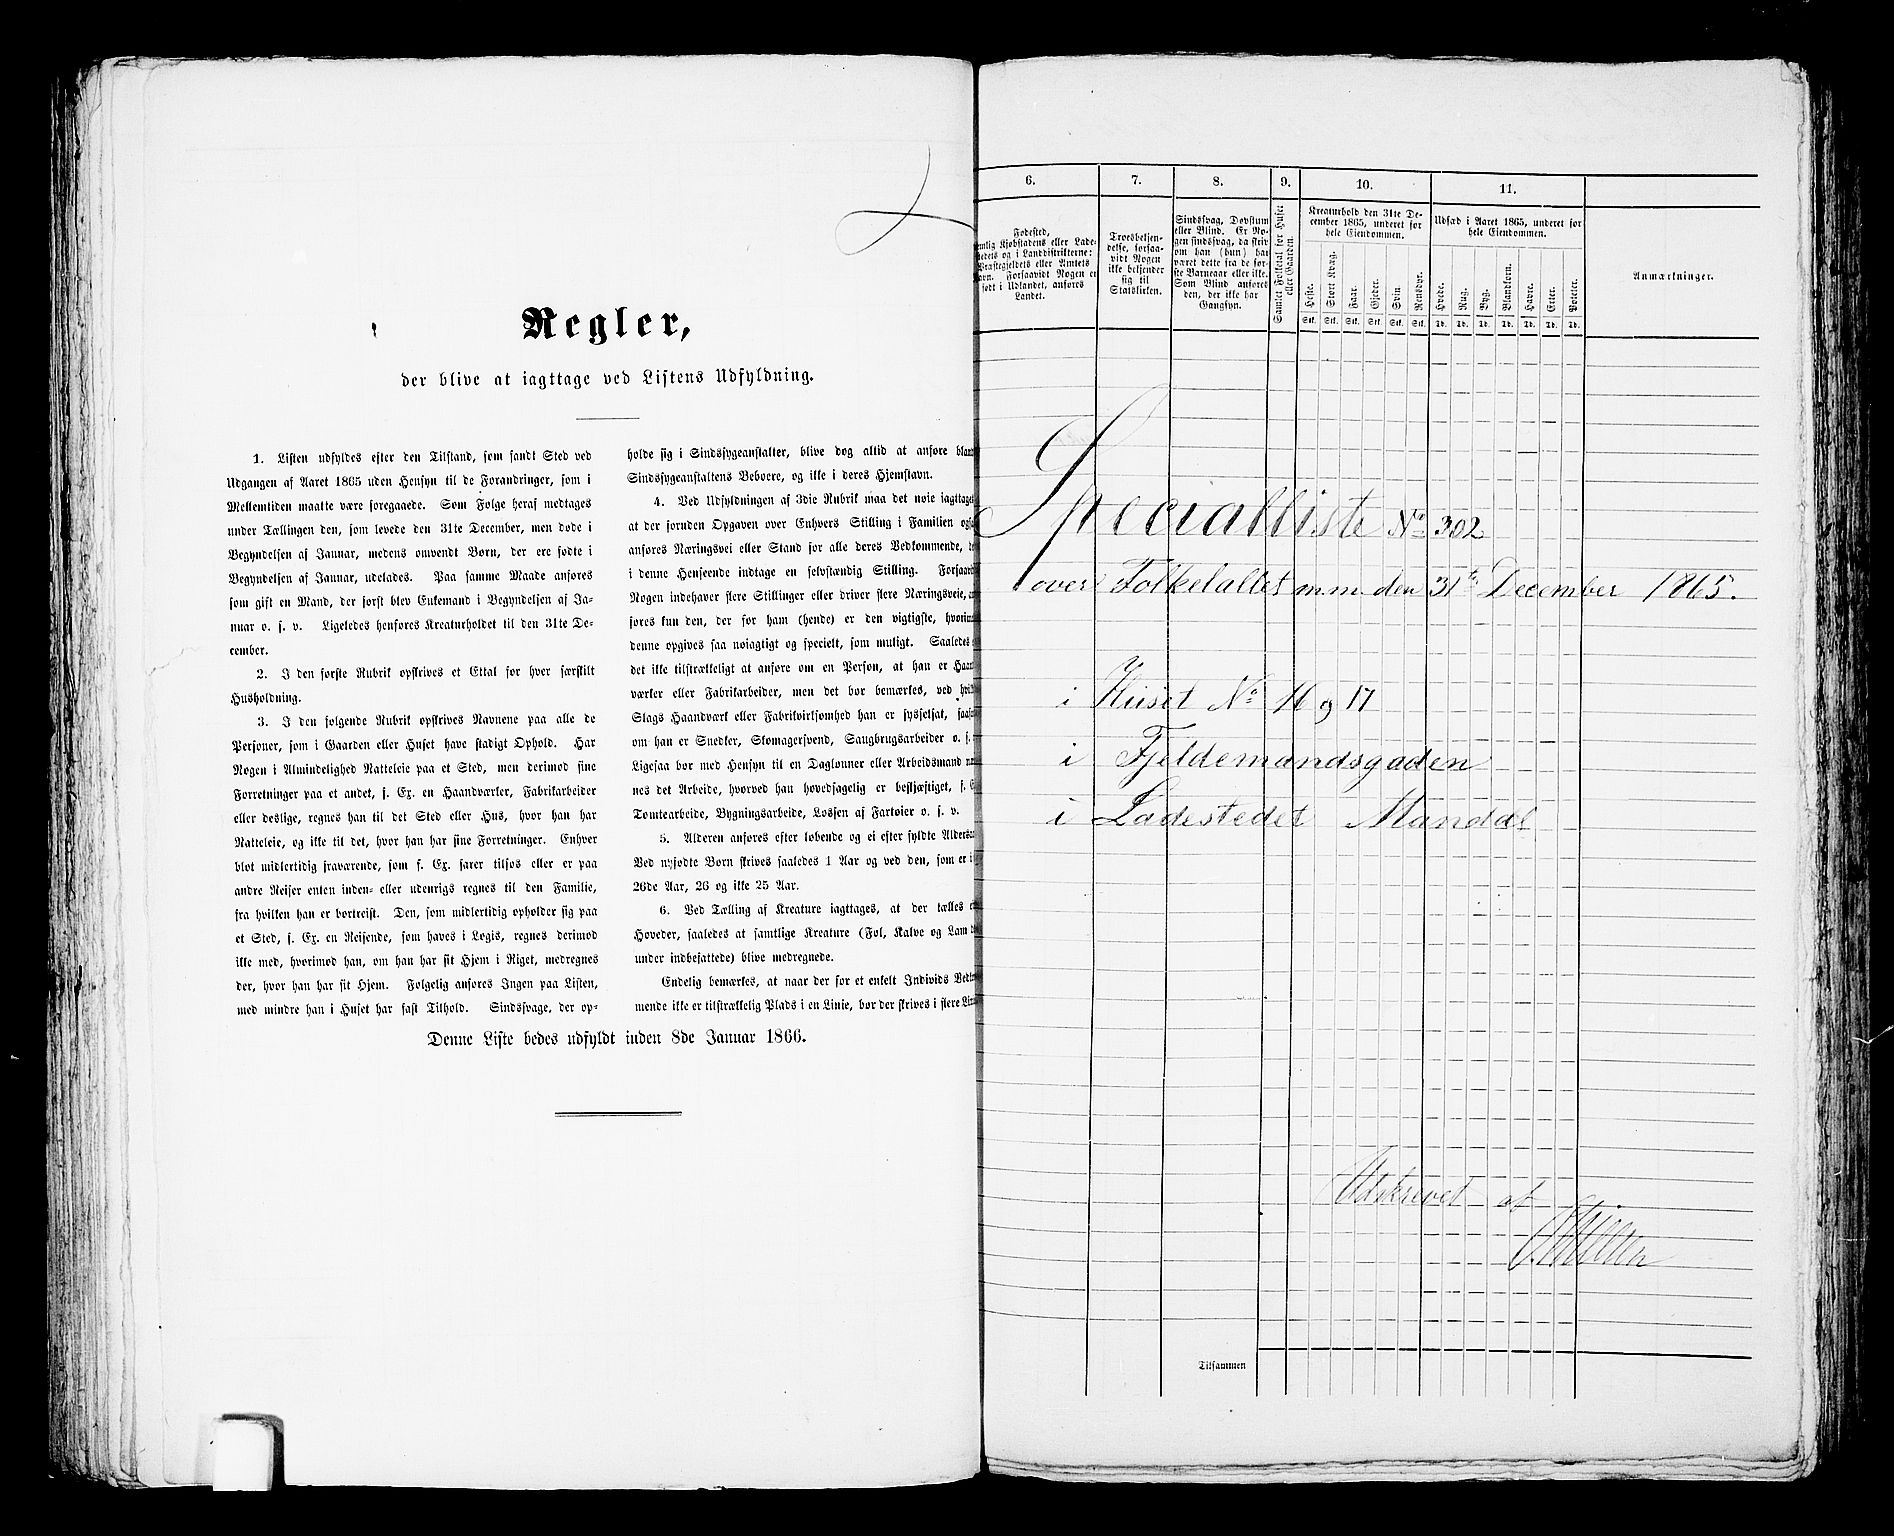 Regler,
der blive at iagttage ved Listens Udfyldning.
1. Listen udfyldes efter den Tilstand, som fandt Sted ved
Udgangen af Aaret 1865 uden Hensyn til de Forandringer, som i
Mellemtiden maatte være foregaaede. Som Følge heraf medtages
under Tællingen den, som levede den 31te December, men døde i
Begyndelsen af Januar, medens omvendt Børn, der ere fødte i
Begyndelsen af Januar, udelades. Paa samme Maade anføres
som gift en Mand, der først blev Enkemand i Begyndelsen af Ja-
nuar o. s. v. Ligeledes henføres Kreaturholdet til den 31te De-
cember.
2. I den første Rubrik opskrives et Ettal for hver særskilt
Husholdning.
3. I den følgende Rubrik opskrives Navnene paa alle de
Personer, som i Gaarden eller Huset have stadigt Ophold. Har
Nogen i Almindelighed Natteleie paa et Sted, men derimod sine
Forretninger paa et andet, f. Ex. en Haandværker, Fabrikarbeider
eller deslige, regnes han til det Sted eller Hus, hvor han har
Natteleie, og ikke til det, hvor han har sine Forretninger. Enhver
blot midlertidig fraværende, som f. Ex. farer tilsjøs eller er paa
andre Reiser enten inden- eller udenrigs regnes til den Familie,
fra hvilken han er bortreist. Den, som midlertidig opholder sig paa
et Sted, f. Ex. en Reisende, som haves i Logis, regnes derimod
ikke med, hvorimod han, om han har sit Hjem i Riget, medregnes
der, hvor han har sit Hjem. Følgelig anføres Ingen paa Listen,
med mindre han i Huset har fast Tilhold. Sindssvage, der op-
holde sig i Sindssygeanstalter, blive dog altid at anføre blan
Sindssygeanstaltens Beboere, og ikke i deres Hjemstavn.
4. Ved Udfyldningen af 3die Rubrik maa det nøie iagttages
at der foruden Opgaven over Enhvers Stilling i Familien og
anføres Næringsvei eller Stand for alle deres Vedkommende,
i denne Henseende indtage en selvstændig Stilling. Forsaavi
Nogen indehaver flere Stillinger eller driver flere Næringsveie,
føres kun den, der for ham (hende) er den vigtigste, hvorim
denne opgives saa nøiagtigt og specielt, som muligt. Saaledes
det ikke tilstrækkeligt at anføre om en Person, at han er Haan
værker eller Fabrikarbeider, men det bør bemærkes, ved hvi
Slags Haandværk eller Fabrikvirksomhed han er sysselsat, saa
om han er Snedker, Skomagersvend, Saugbrugsarbeider o. s.
Ligesaa bør med Hensyn til en Daglønner eller Arbeidsmand
nes det Arbeide, hvorved han hovedsagelig er beskjæftiget, f.
Tomtearbeide, Bygningsarbeide, Lossen af Fartøier o. s. v.
5. Alderen anføres efter løbende og ei efter fyldte Alders
Ved nyfødte Børn skrives saaledes 1 Aar og ved den, som er i
26de Aar, 26 og ikke 25 Aar.
6. Ved Tælling af Kreature iagttages, at der tælles
Hoveder, saaledes at samtlige Kreature (Føl, Kalve og Lam
under indbefattede) blive medregnede.
Endelig bemærkes, at naar der for et enkelt Individs Vedkom
mende ikke er tilstrækkelig Plads i en Linie, bør der skrives i flere Lin
Denne Liste bedes udfyldt inden 8de Januar 1866.
6. 7. 8. 9. 10. 11.
Fødested,
emlig Kjøbstadens eller Lade-
stedets og i Landdistrikterne:
Præstegjeldets eller Amtets
Navn. Forsaavidt Nogen er
født i Udlandet, anføres
Landet.
Troesbekjen-
delse, forsaa-
vidt Nogen
ikke bekjender
sig til
Statskirken.
Sindssvag, Døvstum
eller Blind. Er No-
gen sindssvag, da skriv
om han (hun) har
været dette fra de før-
ste Barneaar eller ikke.
Som Blind anføres
den, der ikke har
Gangsyn.
Samlet Folketal for Huset
eller Gaarden.
Kreaturhold den 31te De-
cember 1865, underet for
hele Eiendommen.
Heste. Stort Kvæg. Faar. Gjeder. Svin. Rensdyr.
Stk. Stk. Stk. Stk. Stk. Stk.
Udsæd i Aaret 1865, underet for
hele Eiendommen.
Hvede. Rug. Byg. Blandkorn. Havre. Erter. Poteter.
Td. Td. Td. Td. Td. Td. Td.
Anmærkninger.
Specialliste No 302
over Folketallet m.m. den 31te December 1865.
i Huset No 16 og 17
i Fjeldemandsgaden
i Ladestedet Mandal
Udskrevet af
Tilsammen